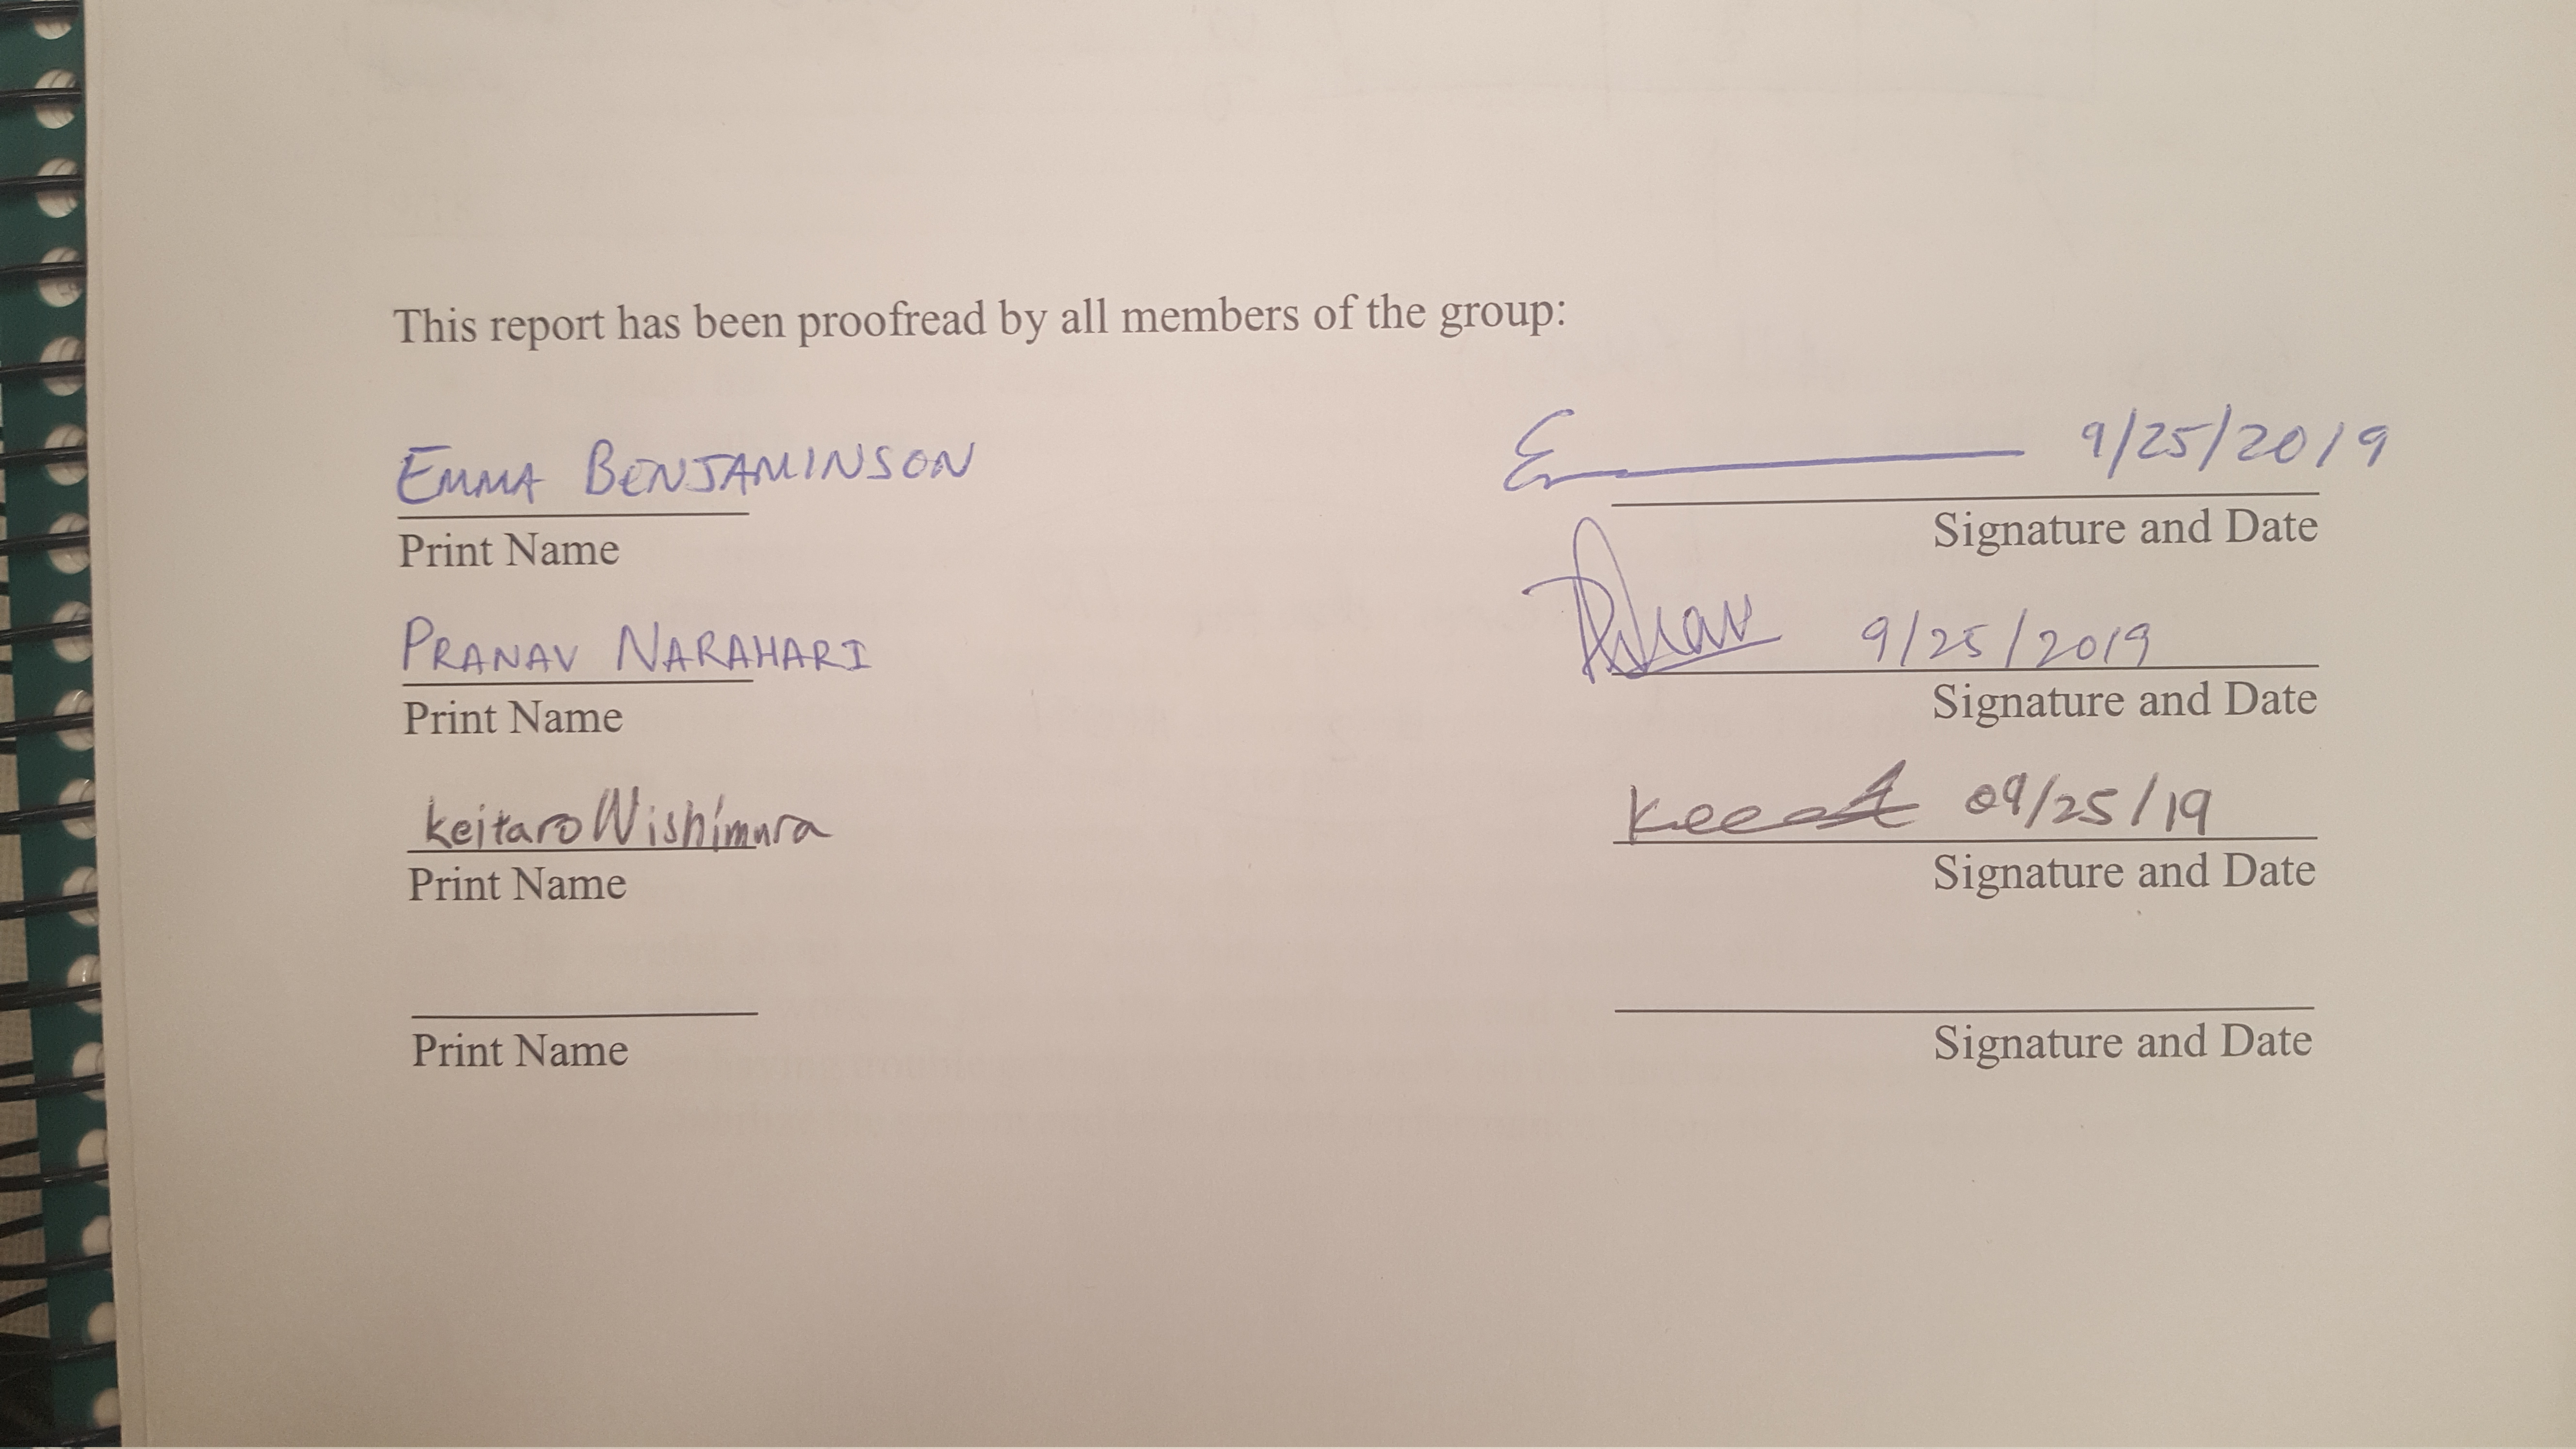 This report has been proofread by all members of the group:
EMMA BENJAMINSON 9/25/2019
Print Name Signature and Date
PRANAV NARAHARI Pranav 9/25/2019
Print Name Signature and Date
Keitaro Nishimura 09/25/19
Print Name Signature and Date
Print Name Signature and Date